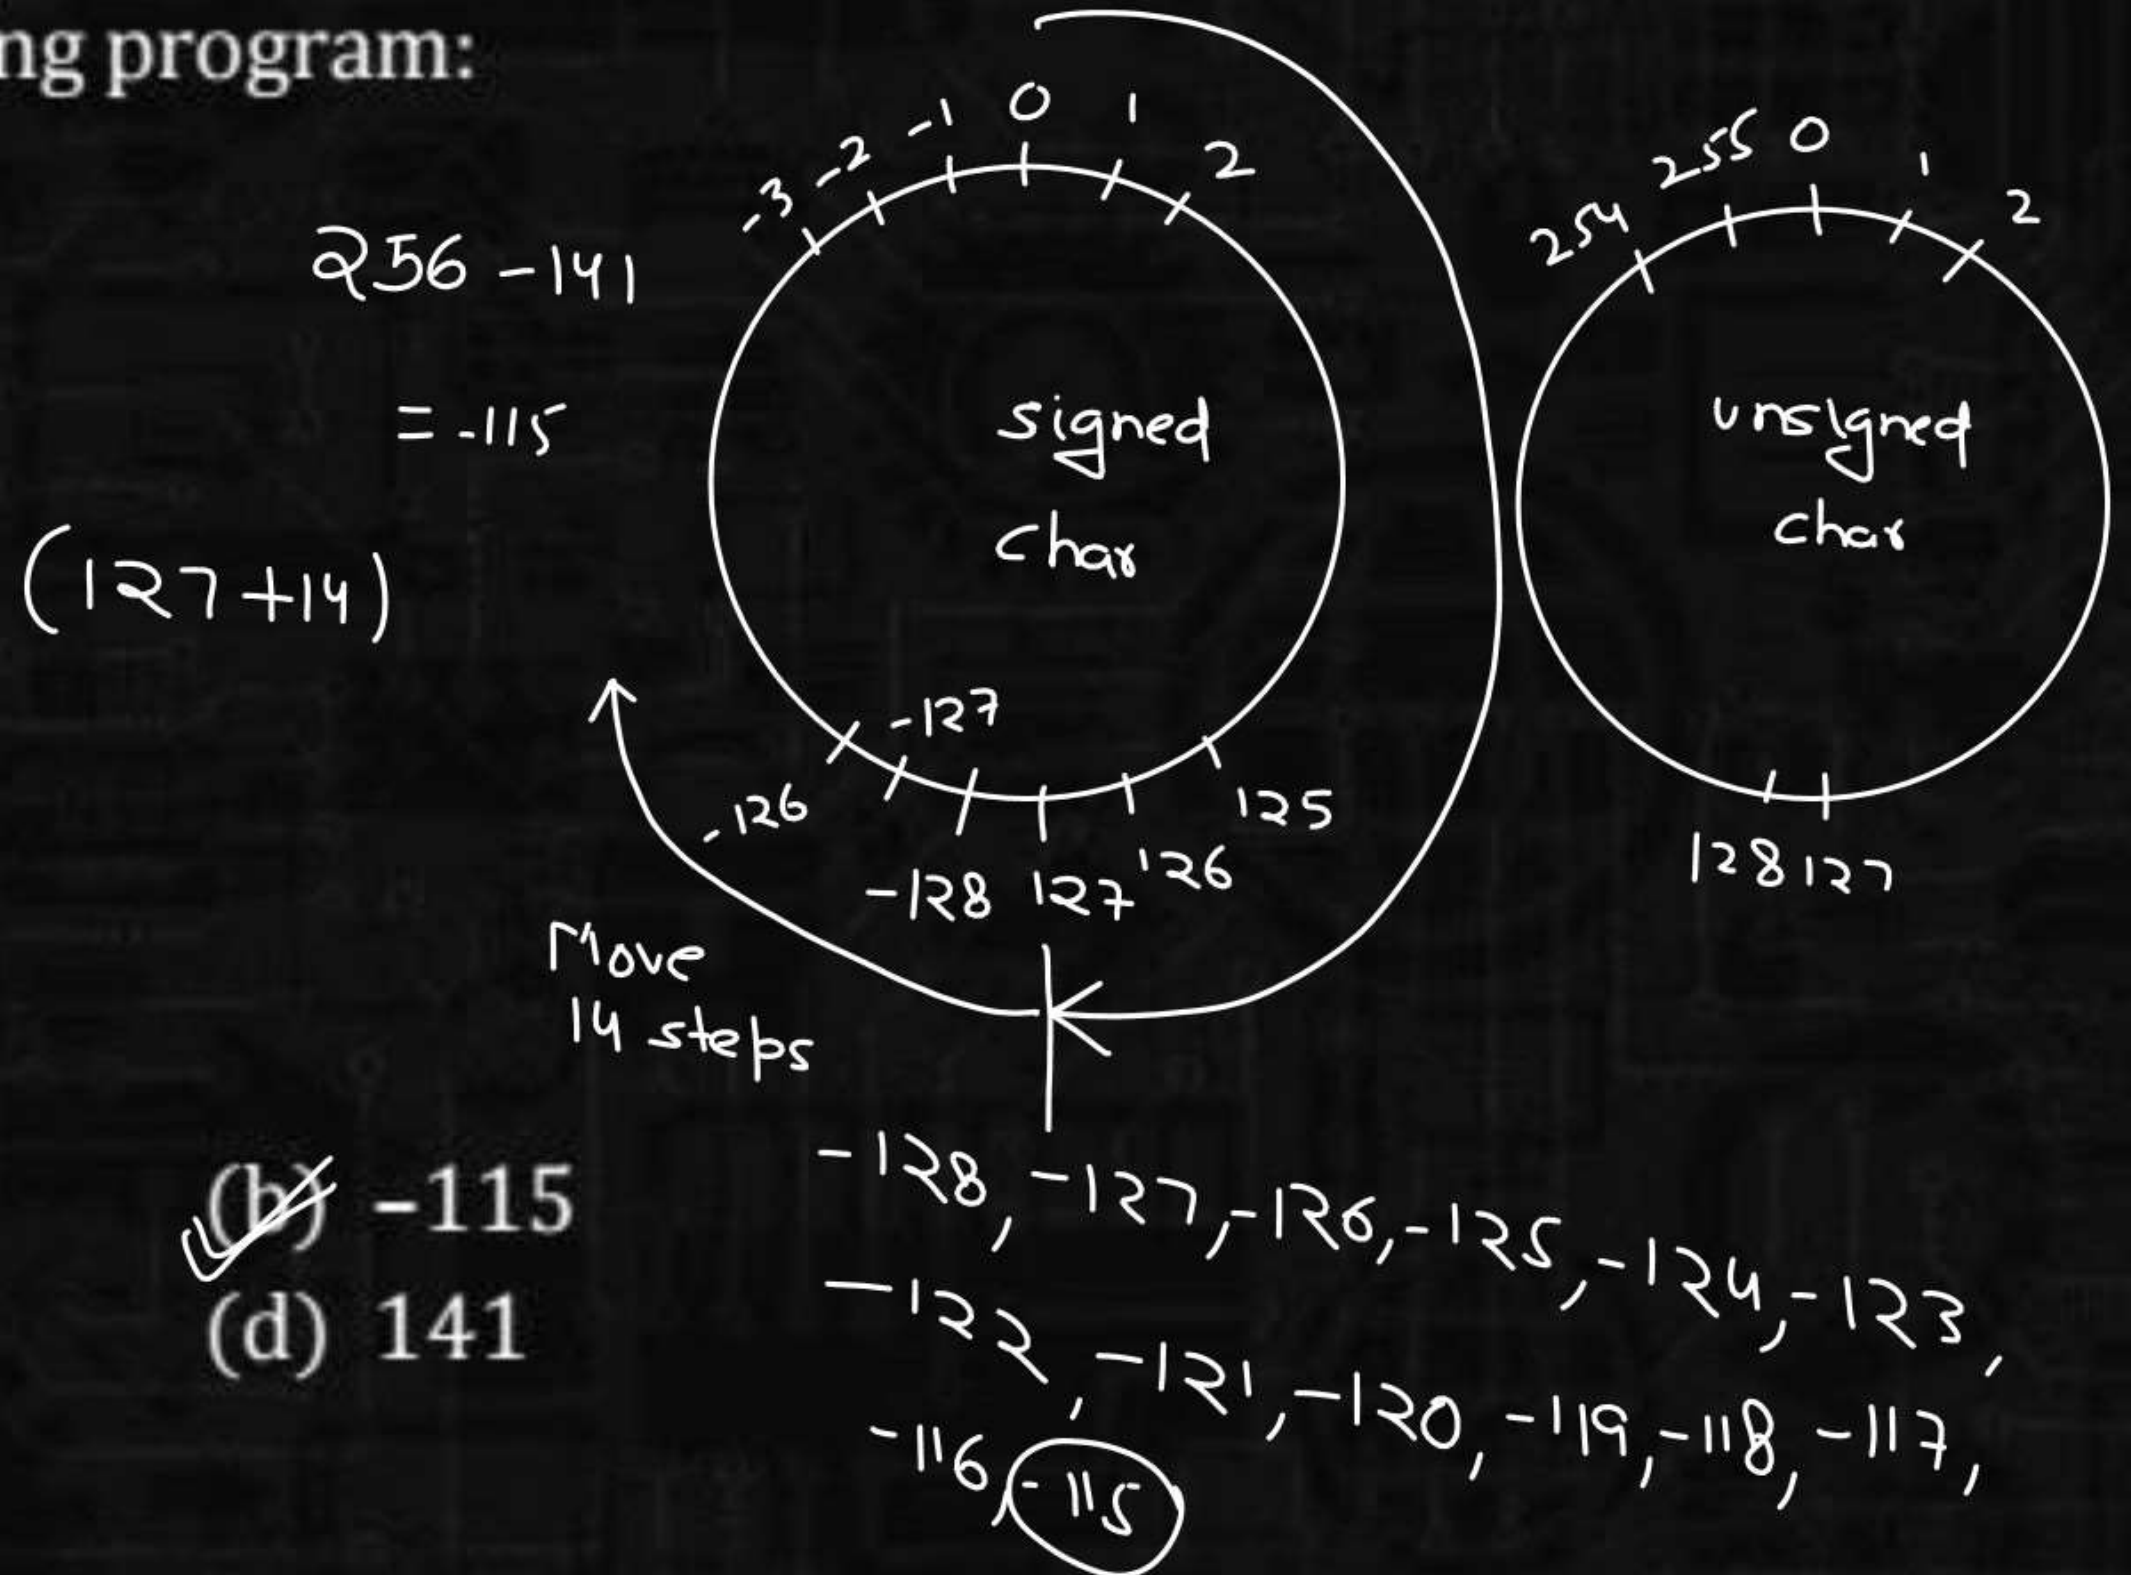 ng program:
256 - 141
= -115
(127+14)
-3 -2 -1 0 1 2
signed
char
-126 -127 -128 127 126 125
254 255 0 1 2
unsigned
char
128 127
Move
14 steps
(b) -115
(d) 141
-128, -127, -126, -125, -124, -123,
-122, -121, -120, -119, -118, -117,
-116, -115